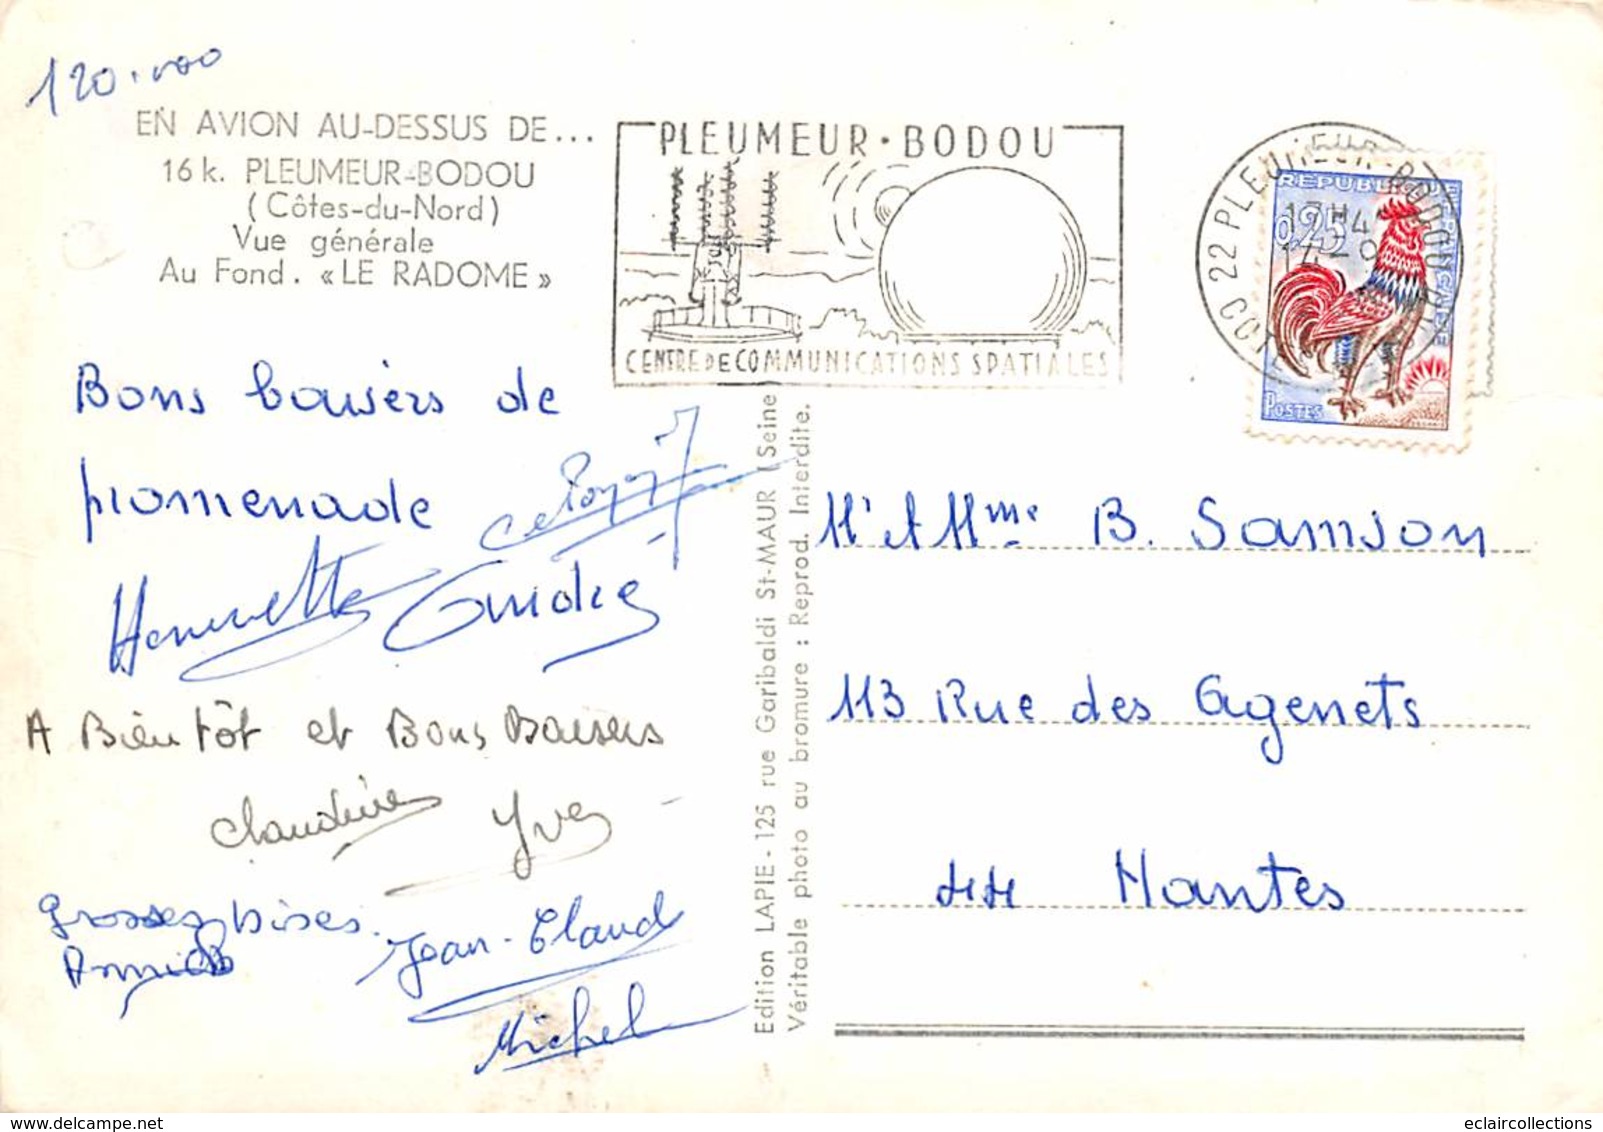 120.000
EN AVION AU-DESSUS DE...
16 k. PLEUMEUR-BODOU
(Côtes-du-Nord)
Vue générale
Au Fond. « LE RADOME »
PLEUMEUR·BODOU
CENTRE DE COMMUNICATIONS SPATIALES
22 PLEUMEUR-BODOU
17H4
14-9
RÉPUBLIQUE FRANÇAISE
0,25
POSTES
Bons baisers de
promenade
Henriette André
A Bientôt et Bons Baisers
Claudine Yves
Grosses bises.
Annick
Jean-Claud
Michel
Edition LAPIE - 125 rue Garibaldi St-MAUR (Seine
Véritable photo au bromure : Reprod. Interdite.
Mr et Mme B. Samson
113 Rue des Agenets
44 Nantes
eclaircollections